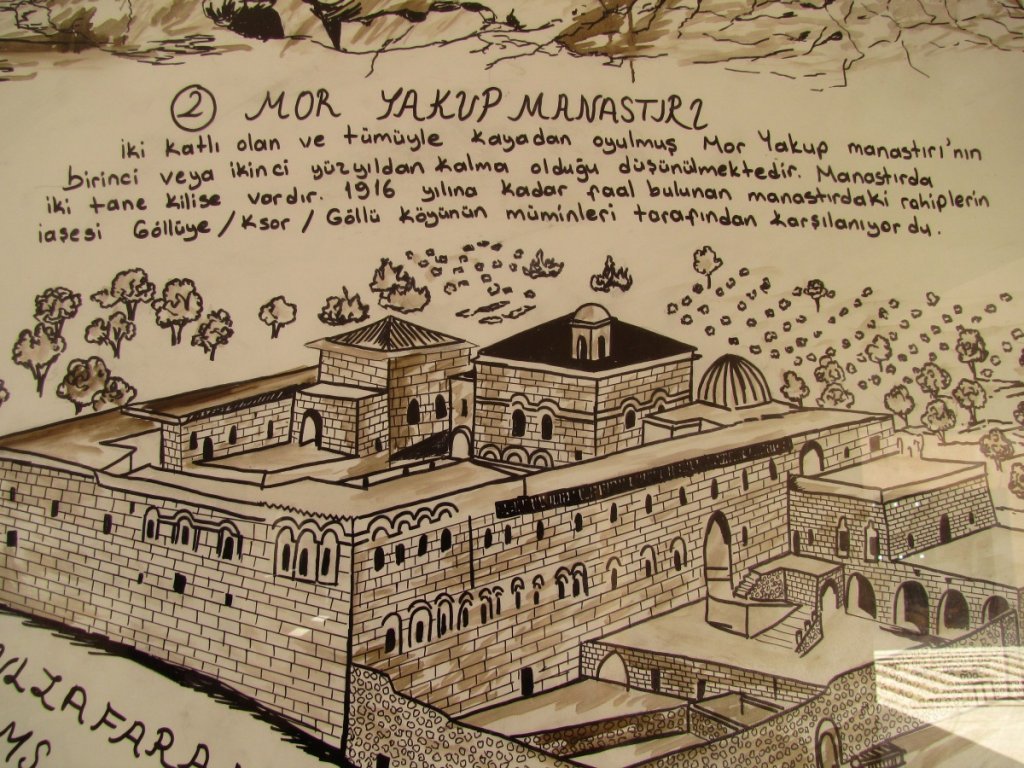 2 MOR YAKUP MANASTIRI
iki katlı olan ve tümüyle kayadan oyulmuş Mor Yakup manastırı'nın
birinci veya ikinci yüzyıldan kalma olduğu düşünülmektedir. Manastırda
iki tane kilise vardır. 1916 yılına kadar faal bulunan manastırdaki rahiplerin
iaşesi Göllüye / Ksor / Göllü köyünün müminleri tarafından karşılanıyordu.